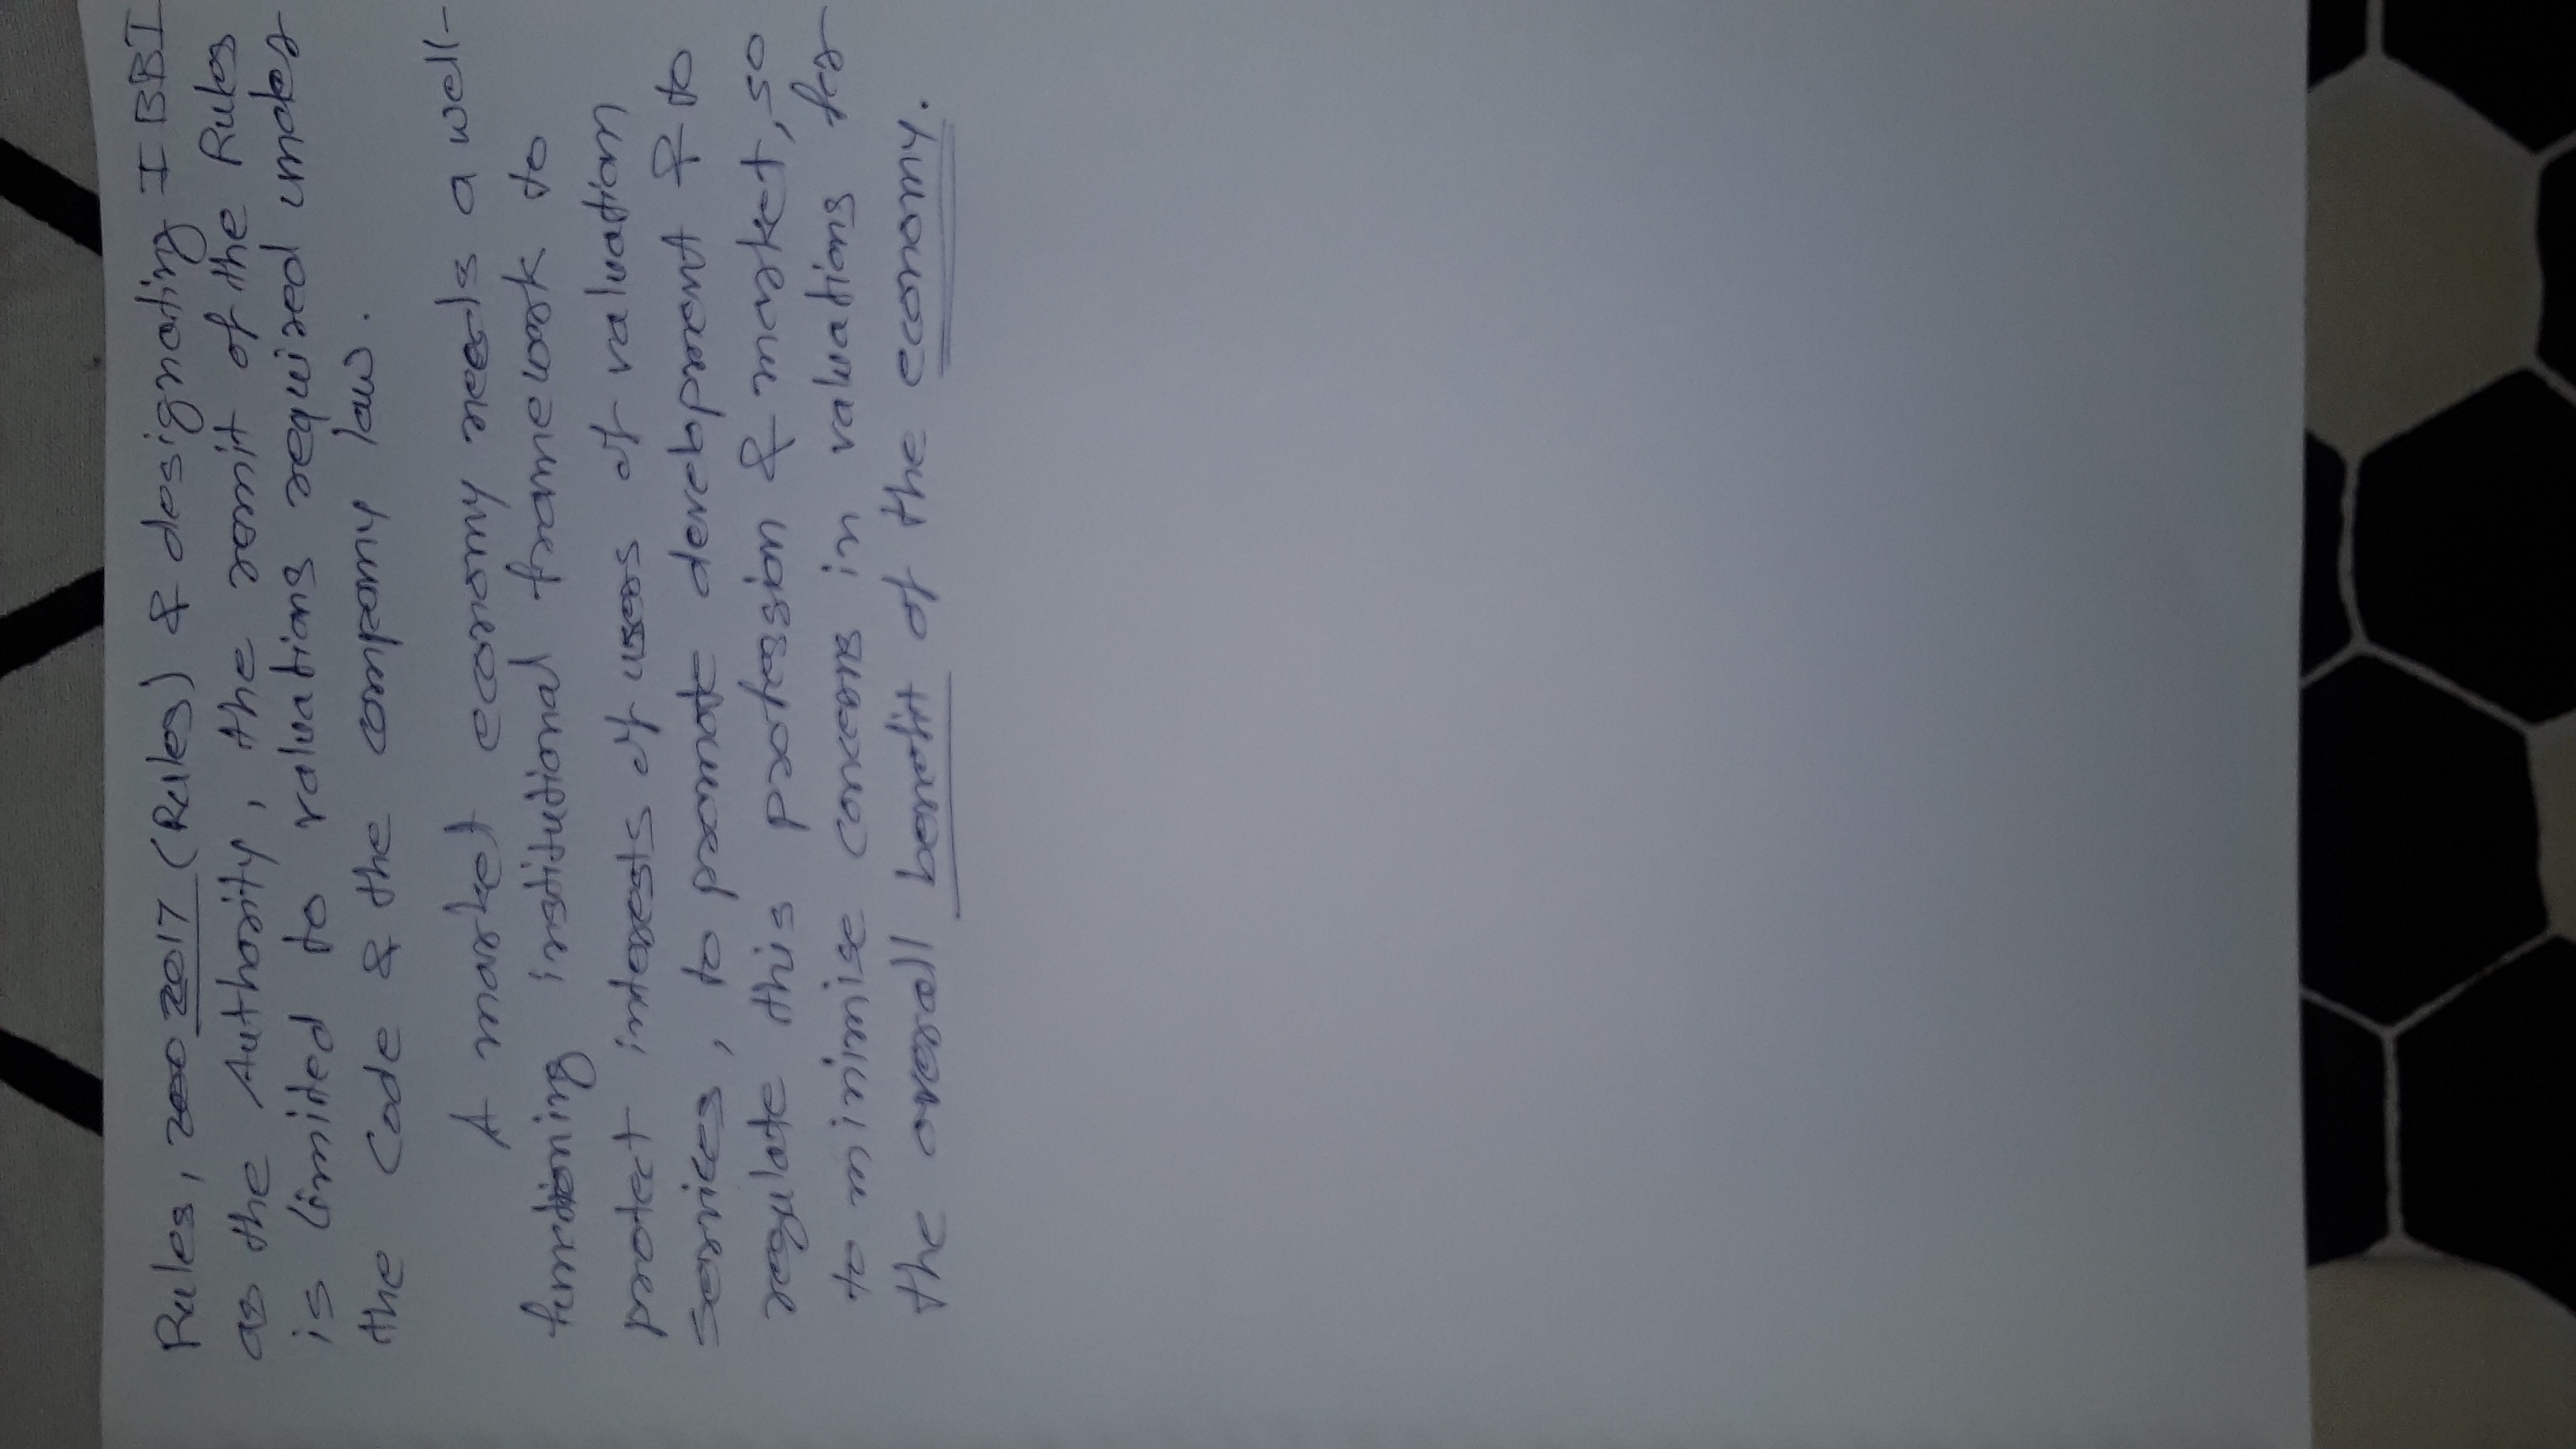 Rules, 2000 2017 (Rules) & designating IBBI
as the Authority, the remit of the Rules
is limited to valuations required under
the Code & the company law.
A market economy needs a well-
functioning institutional framework to
protect interests of users of valuation
services, to promote development & to
regulate this profession & market, so
to minimise concerns in valuations for
the overall benefit of the economy.